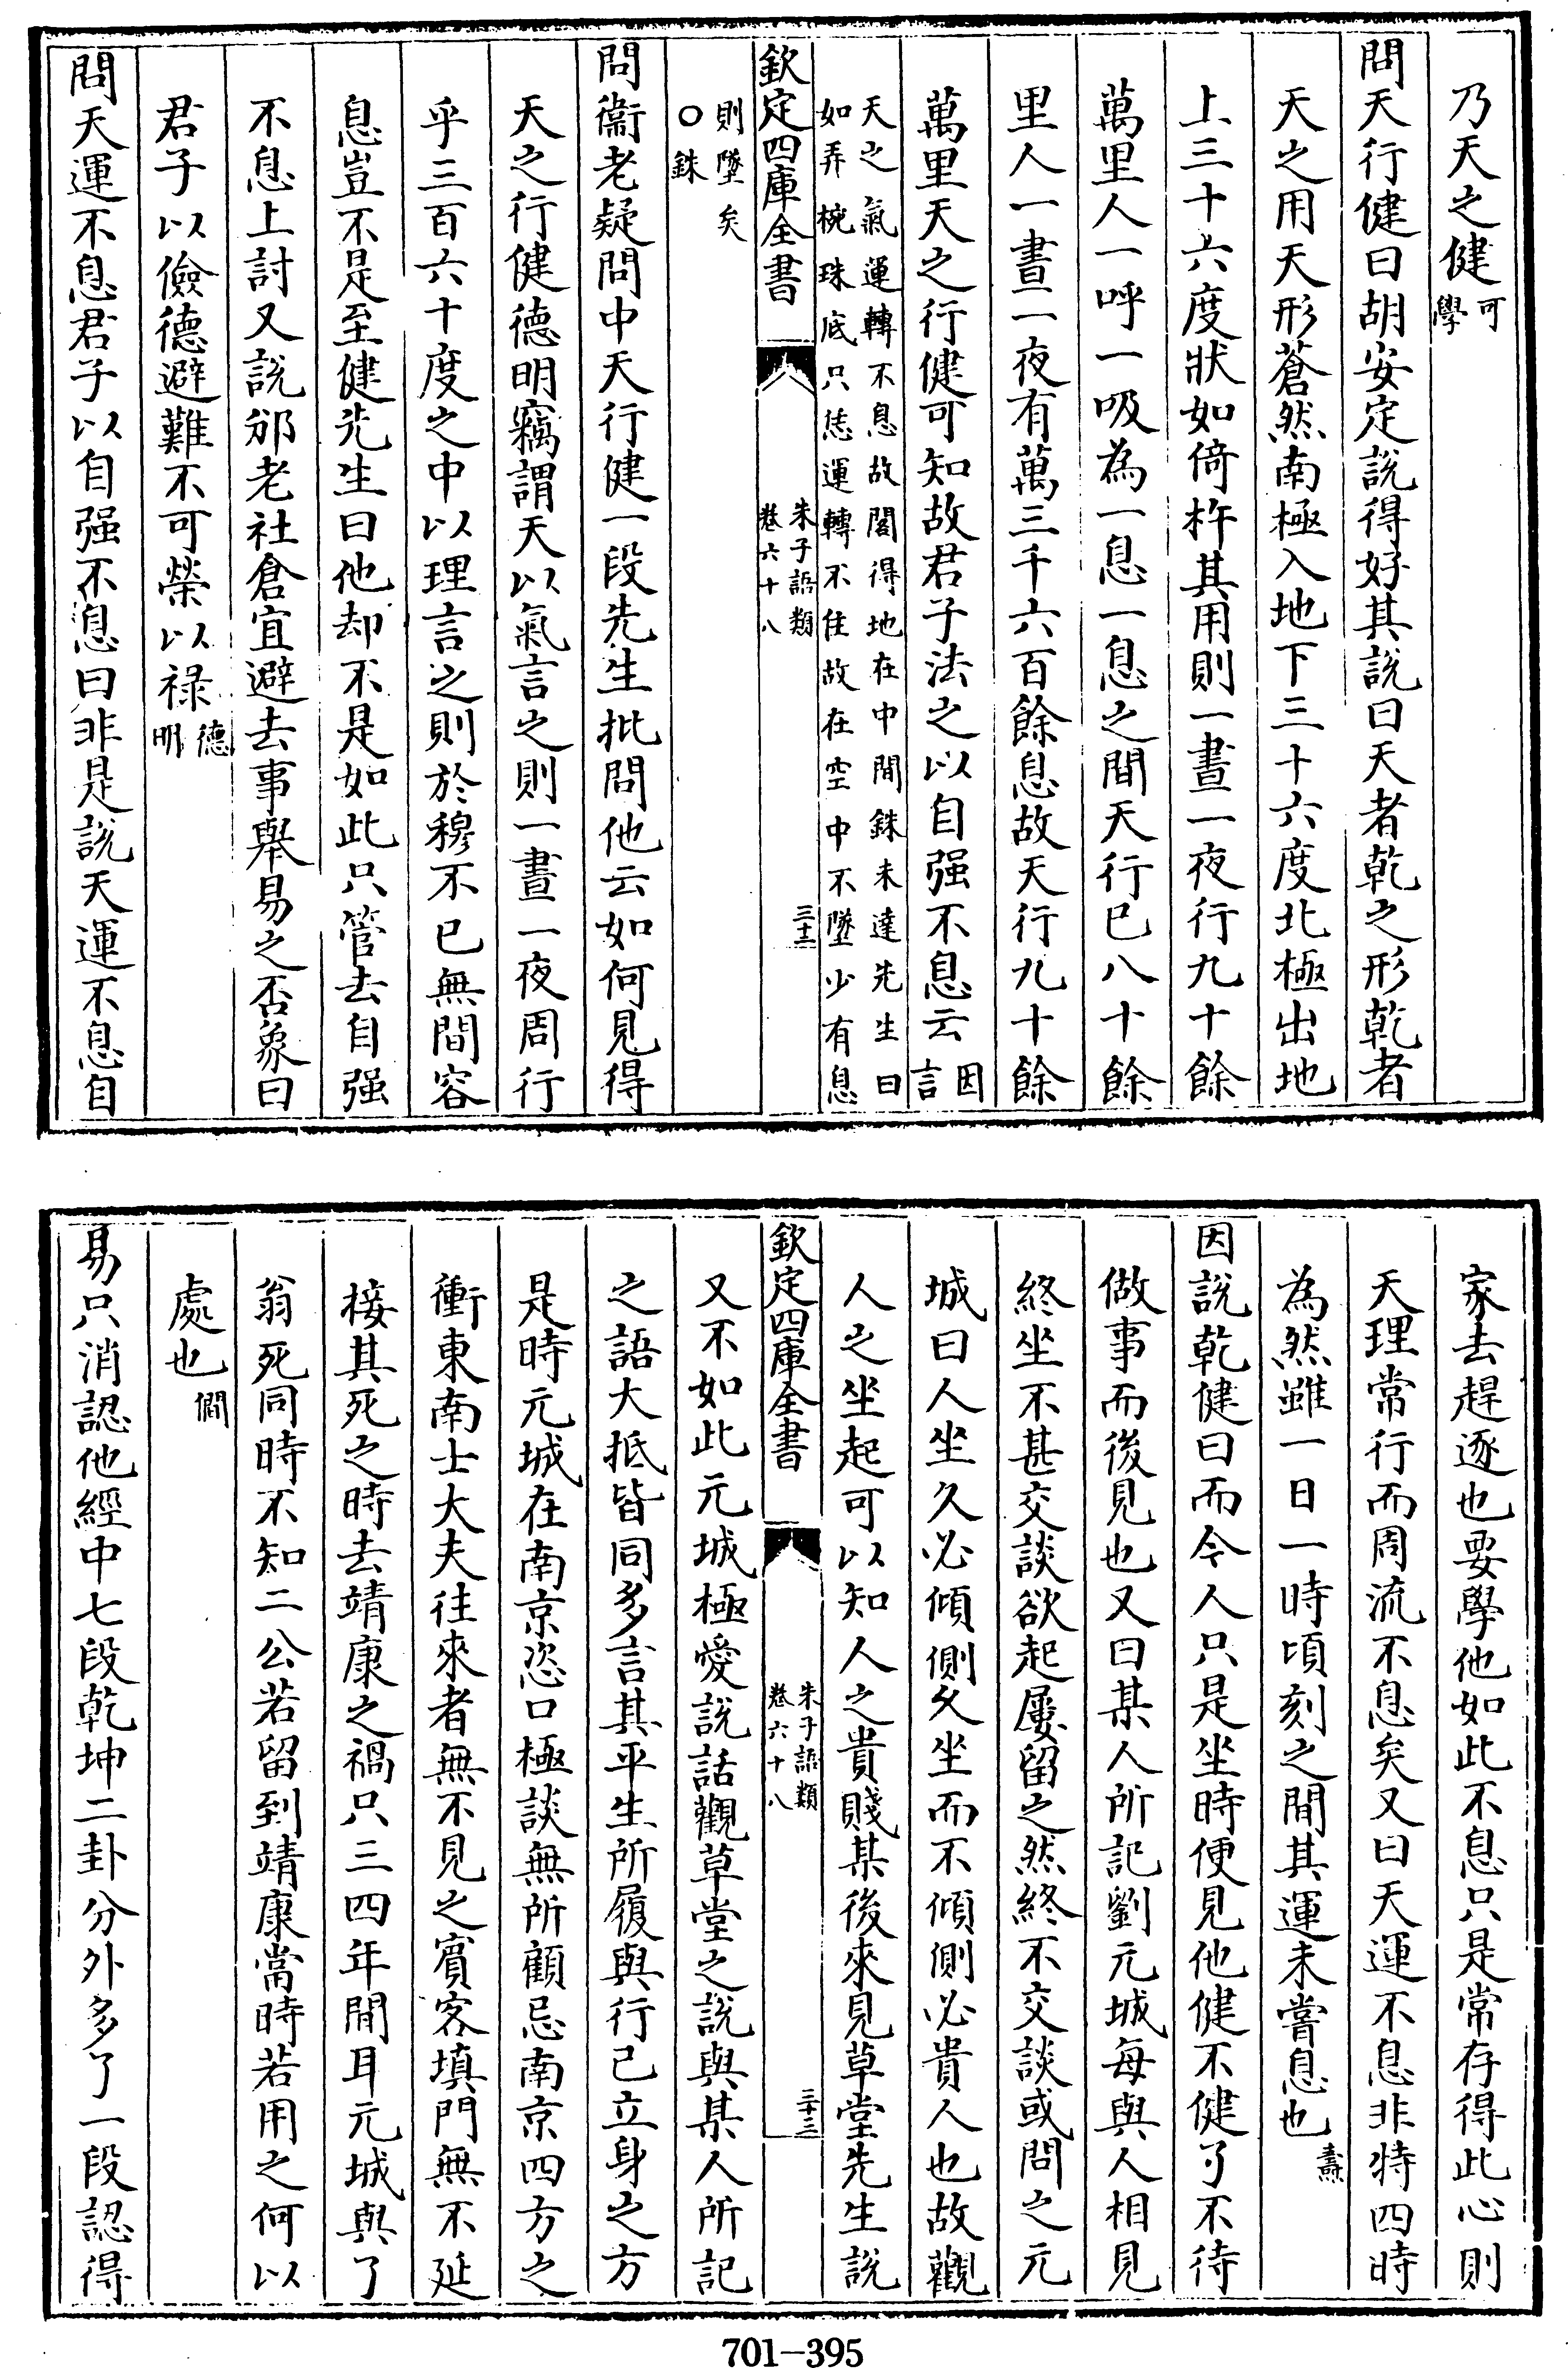 乃天之健可學
問天行健曰胡安定說得好其說曰天者乾之形乾者
天之用天形蒼然南極入地下三十六度北極出地
上三十六度狀如倚杵其用則一晝一夜行九十餘
萬里人一呼一吸為一息一息之間天行已八十餘
里人一晝一夜有萬三千六百餘息故天行九十餘
萬里天之行健可知故君子法之以自强不息云因言
天之氣運轉不息故閣得地在中間銖未達先生曰
如弄椀珠底只恁運轉不住故在空中不墜少有息
欽定四庫全書
朱子語類
卷六十八
三十二
則墜矣
○銖
問衞老疑問中天行健一段先生批問他云如何見得
天之行健德明竊謂天以氣言之則一晝一夜周行
乎三百六十度之中以理言之則於穆不已無間容
息豈不是至健先生曰他却不是如此只管去自强
不息上討又說邠老社倉宜避去事舉易之否象曰
君子以儉德避難不可榮以祿德明
問天運不息君子以自强不息曰非是說天運不息自
家去趕逐也要學他如此不息只是常存得此心則
天理常行而周流不息矣又曰天運不息非特四時
為然雖一日一時頃刻之間其運未嘗息也燾
因說乾健曰而今人只是坐時便見他健不健了不待
做事而後見也又曰某人所記劉元城每與人相見
終坐不甚交談欲起屢留之然終不交談或問之元
城曰人坐久必傾側久坐而不傾側必貴人也故觀
人之坐起可以知人之貴賤某後來見草堂先生說
欽定四庫全書
朱子語類
卷六十八
三十三
又不如此元城極愛說話觀草堂之說與某人所記
之語大抵皆同多言其平生所履與行己立身之方
是時元城在南京恣口極談無所顧忌南京四方之
衝東南士大夫往來者無不見之賓客填門無不延
接其死之時去靖康之禍只三四年間耳元城與了
翁死同時不知二公若留到靖康當時若用之何以
處也僩
易只消認他經中七段乾坤二卦分外多了一段認得
701-395